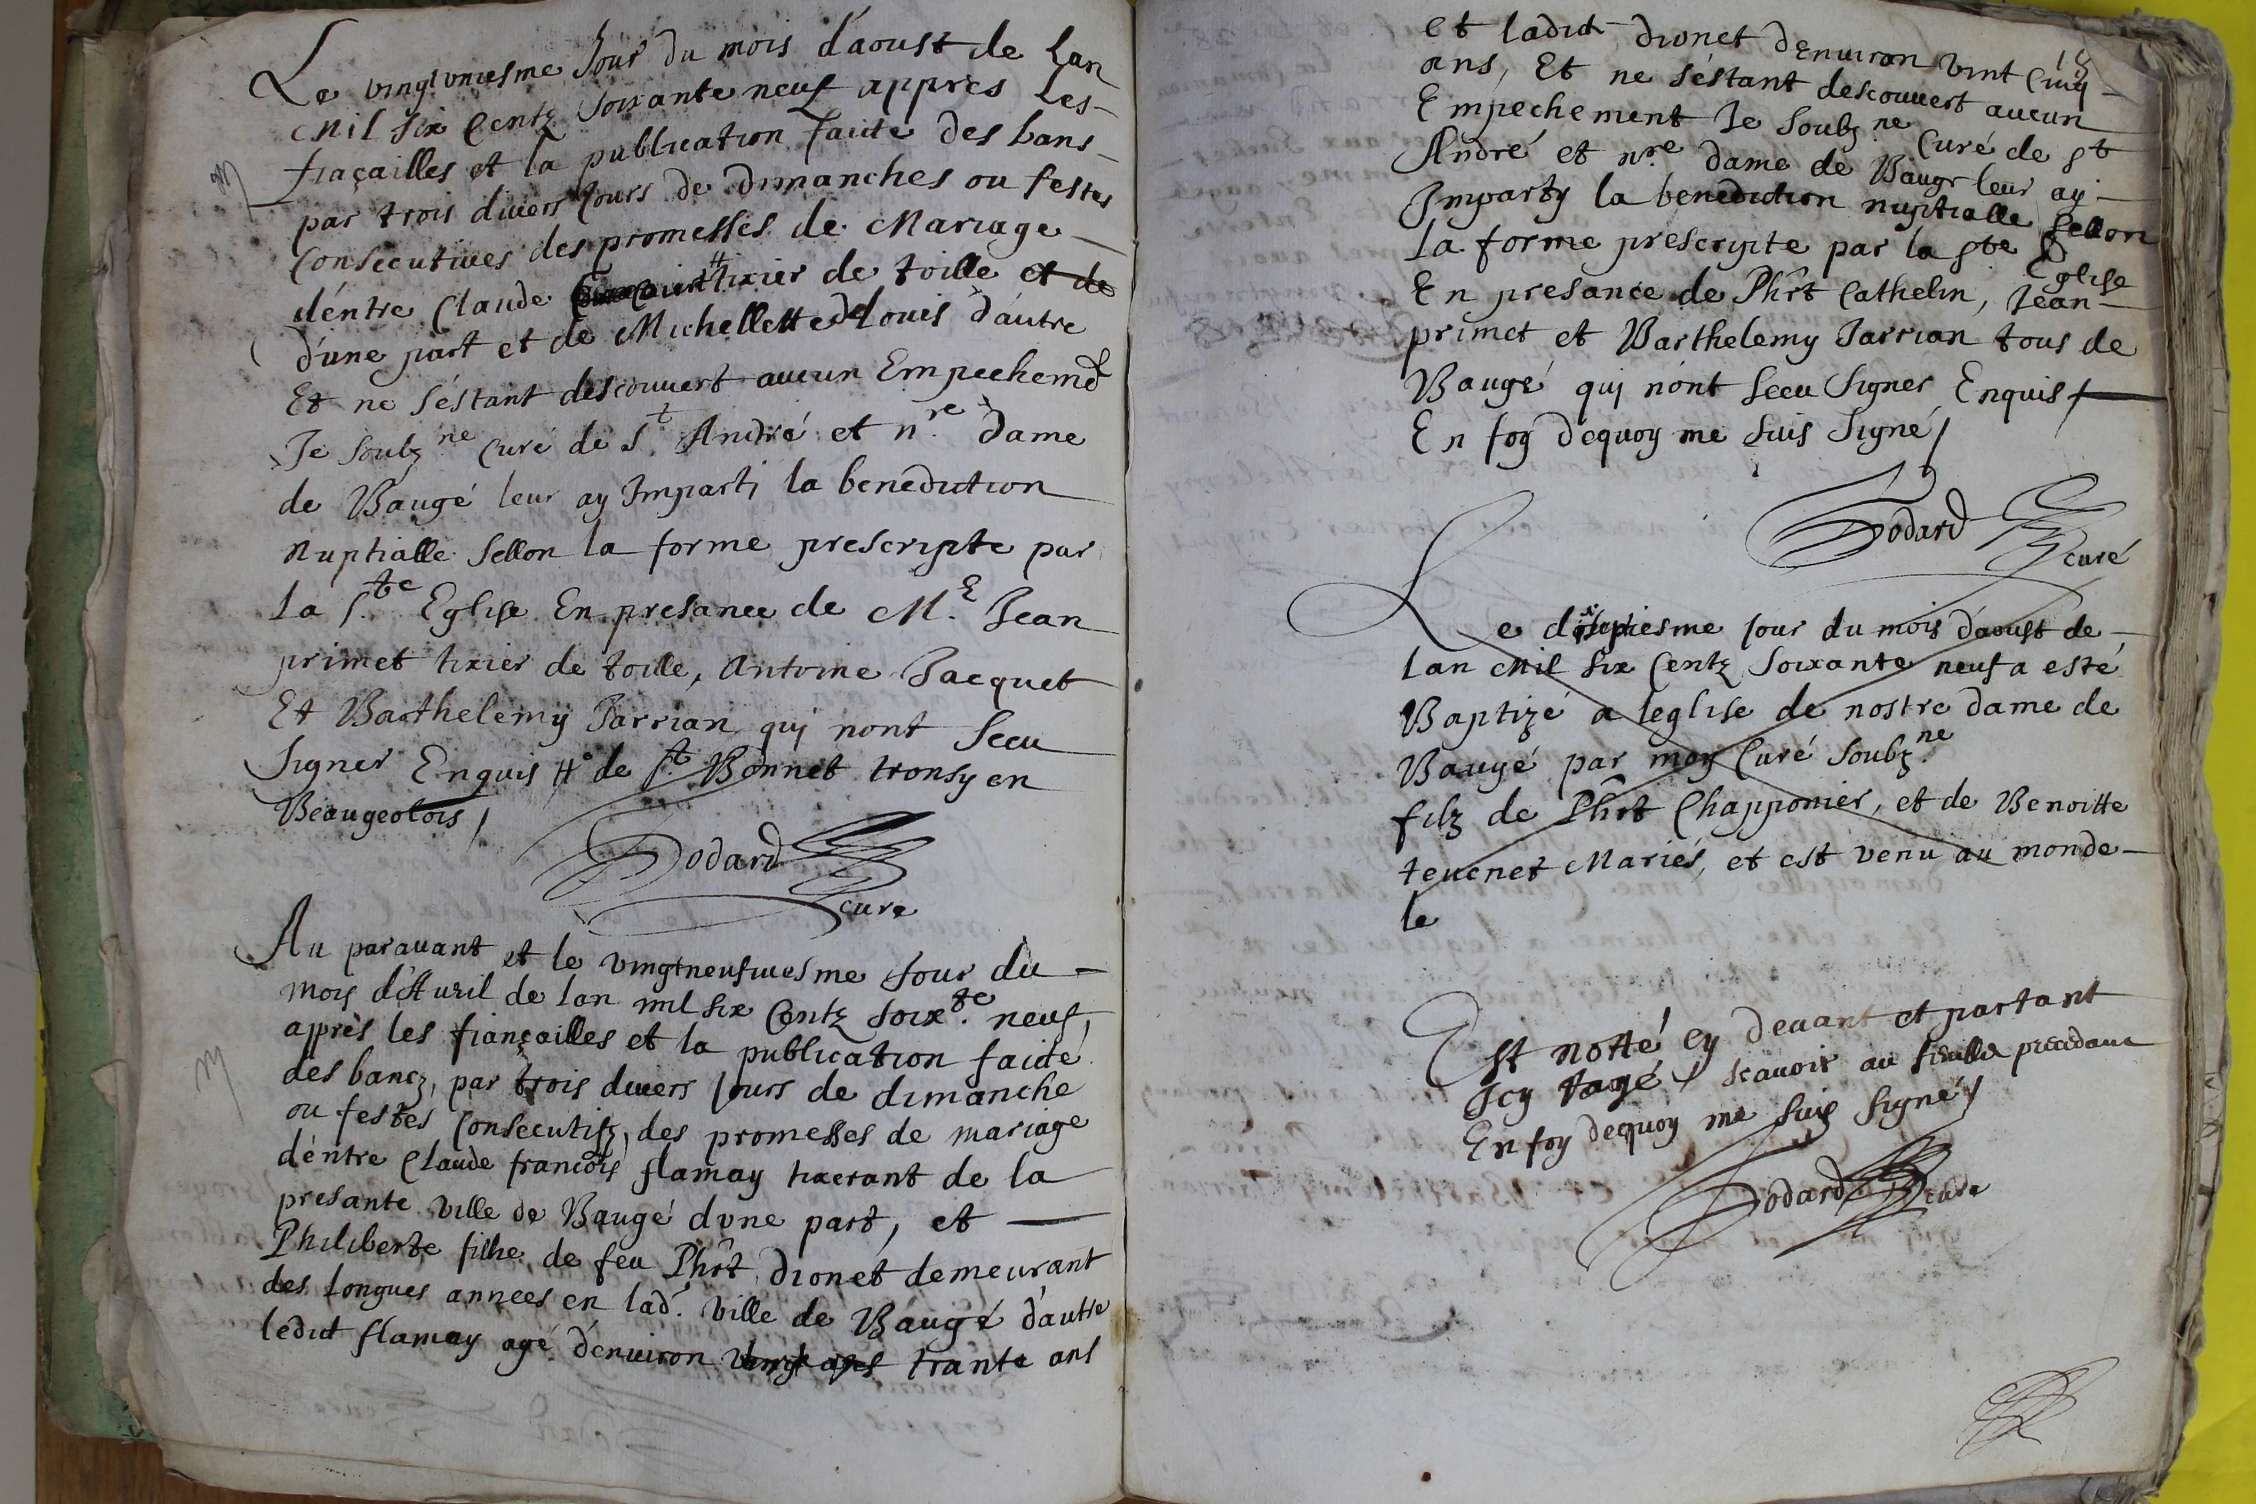 Le vingt uniesme Jour du mois d'aoust de Lan
Mil six Centz soixante neuf appres Les
fiaçailles et la publication faicte des bans
par trois divers Jours de dimanches ou festes
Consecutives des promesses de Mariage
d'entre Claude # tixier de toille et de
d'une part et de Michellette de Louis d'autre
Et ne s'estant descouvert aucun Empechemt
Je soubz.ne Curé de St André et n.re dame
de Baugé leur ay Imparti la benediction
nuptialle sellon la forme prescripte par
La S.te Eglise En presance de M.E Jean
primet tixier de toille, Antoine Jacquet
Et Barthelemy Jarrian qui nont sceu
signer Enquis # de St Bonnet tronsy en
Beaugeolois /
Dodard
curé
Au paravant et le vingtneufviesme Jour du
mois d'Avril de lan mil six Centz soix.te neuf,
apprès les fiançailles et la publication faicte
des bancz, par trois divers Jours de dimanche
ou festes Consecutifz, des promesses de mariage
d'entre Claude françois flamay tixerant de la
presante ville de Baugé d'une part, et
Philiberte fillie de feu Phrt dionet demeurant
des longues annees en lad. ville de Baugé d'autre
ledict flamay agé d'environ vingt ans trante ans
M
M
18
et ladict dionet d'environ vint cinq
ans, Et ne s'estant descouvert aucun
Empechement Je soubz ne Curé de St
André et n.re dame de Baugé leur ay
Imparty la benediction nuptialle sellon
La forme prescripte par la Ste Eglise
En presance de Phrt Cathelin, Jean
primet et Barthelemy Jarrian tous de
Baugé qui nónt sceu signer Enquis /
En foy dequoy me suis signé /
Dodard
curé
Le dixiesme Jour du mois d'aoust de
Lan Mil six Centz soixante neuf a esté
Baptizé a leglise de nostre dame de
Baugé par moy Curé soubz.ne
filz de Phrt Chapponier, et de Benoitte
tevenet Mariés, et est venu au monde
le
Est notté cy devant et partant
Icy ragé / scavoir au fieullet precedant
En foy dequoy me suis signé /
Dodard
curé